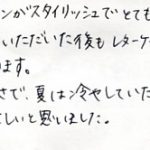 ンがスタイリッシュでとても
いただいた後もレターケ
ます。
さで、夏は冷やしていた
しいと思いました。